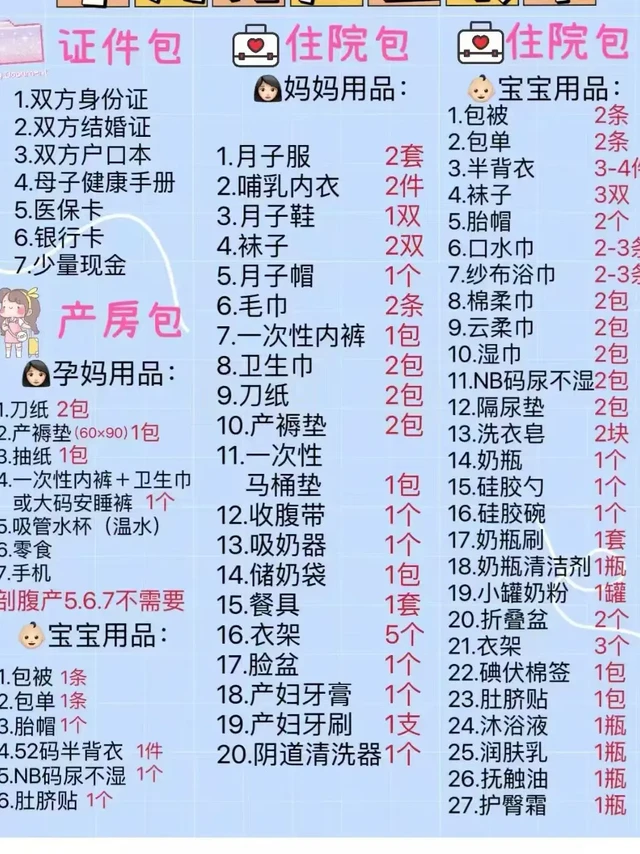 证件包
1.双方身份证
2.双方结婚证
3.双方户口本
4.母子健康手册
5.医保卡
6.银行卡
7.少量现金
产房包
孕妈用品：
1.刀纸 2包
2.产褥垫(60×90)1包
3.抽纸 1包
4.一次性内裤＋卫生巾
或大码安睡裤 1个
5.吸管水杯（温水）
6.零食
7.手机
剖腹产5.6.7不需要
宝宝用品：
1.包被 1条
2.包单 1条
3.胎帽 1个
4.52码半背衣 1件
5.NB码尿不湿 1个
6.肚脐贴 1个
住院包
妈妈用品：
1.月子服 2套
2.哺乳内衣 2件
3.月子鞋 1双
4.袜子 2双
5.月子帽 1个
6.毛巾 2条
7.一次性内裤 1包
8.卫生巾 2包
9.刀纸 2包
10.产褥垫 2包
11.一次性
马桶垫 1包
12.收腹带 1个
13.吸奶器 1个
14.储奶袋 1包
15.餐具 1套
16.衣架 5个
17.脸盆 1个
18.产妇牙膏 1个
19.产妇牙刷 1支
20.阴道清洗器 1个
住院包
宝宝用品：
1.包被 2条
2.包单 2条
3.半背衣 3-4件
4.袜子 3双
5.胎帽 2个
6.口水巾 2-3条
7.纱布浴巾 2-3条
8.棉柔巾 2包
9.云柔巾 2包
10.湿巾 2包
11.NB码尿不湿 2包
12.隔尿垫 2包
13.洗衣皂 2块
14.奶瓶 1个
15.硅胶勺 1个
16.硅胶碗 1个
17.奶瓶刷 1套
18.奶瓶清洁剂 1瓶
19.小罐奶粉 1罐
20.折叠盆 2个
21.衣架 3个
22.碘伏棉签 1包
23.肚脐贴 1包
24.沐浴液 1瓶
25.润肤乳 1瓶
26.抚触油 1瓶
27.护臀霜 1瓶